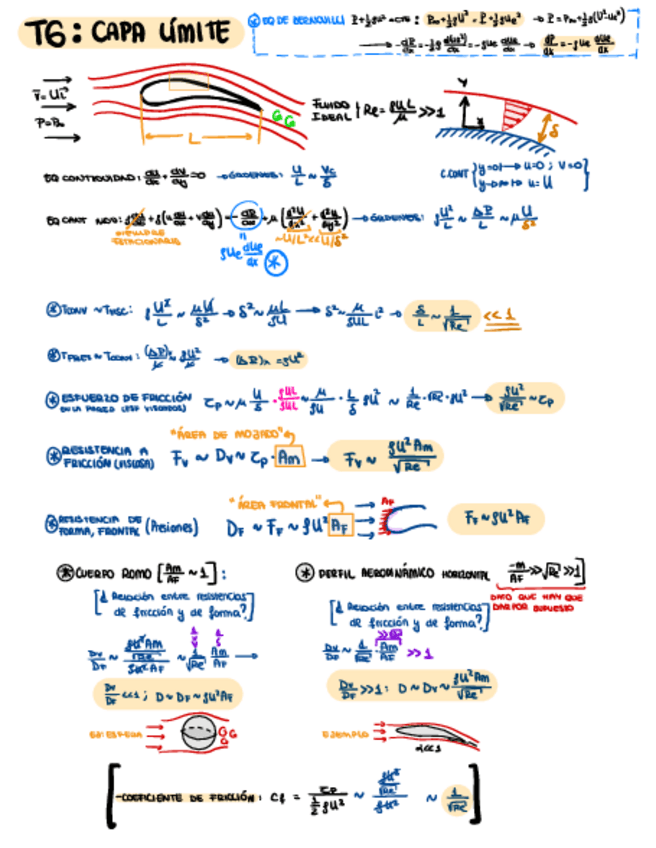 T6: CAPA LÍMITE
* EQ DE BERNOUILLI P+½ρu²=cte : P∞+½ρU² = P+½ρue² → P=P∞+½ρ(U²-ue²)
→ -dP/dx = -½ρ d(ue²)/dx = -ρue due/dx → dP/dx = -ρue due/dx
V=Ui
P=P∞
L
FLUIDO IDEAL | Re = ρUL/μ >>1
Y
X
δ
EQ CONTINUIDAD: du/dx + dv/dy = 0 → ÓRDENES: U/L ~ Vc/δ
C.CONT { y=0 → u=0 ; v=0
y→∞ → u=U }
→ ÓRDENES: ρU²/L ~ ΔP/L ~ μ U/δ²
~U/L² << U/δ²
ρUe due/dx *
* TCONV ~ TVISC: ρ U²/L ~ μU/δ² → δ² ~ μL/ρU → δ² ~ μ/ρUL L² → δ/L ~ 1/√Re << 1
* TPRES ~ TCONV: → (ΔP)x = ρU²
* ESFUERZO DE FRICCIÓN τp ~ μ U/δ · ρUL/ρUL ~ μ/ρU · L/δ ρU² ~ 1/Re · √Re · ρU² → ρU²/√Re ~ τp
"ÁREA DE MOJADO"
* RESISTENCIA A FRICCIÓN (VISCOSA) Fv ~ Dv ~ τp · Am → Fv ~ ρU²Am/√Re
"ÁREA FRONTAL"
AF
* RESISTENCIA DE FORMA, FRONTAL (Presiones) DF ~ FF ~ ρU² AF
FF ~ ρU² AF
* CUERPO ROMO [Am/AF ~ 1] :
[¿Relación entre resistencias de fricción y de forma?]
Dv/DF ~ (ρU²Am/√Re)/(ρU²AF) ~ 1/√Re Am/AF →
Dv/DF <<1 ; D ~ DF ~ ρU²AF
EJ: ESFERA
* PERFIL AERODINÁMICO HORIZONTAL Am/AF >> √Re >> 1]
DATO QUE HAY QUE DAR POR SUPUESTO
[¿Relación entre resistencias de fricción y de forma?]
Dv/DF ~ 1/√Re · Am/AF >> 1
>>√Re
Dv/DF >>1 : D ~ Dv ~ ρU²Am/√Re
EJEMPLO
α<<1
[-COEFICIENTE DE FRICCIÓN: Cf = τp/(½ρU²) ~ (ρU²/√Re)/(ρU²) ~ 1/√Re]